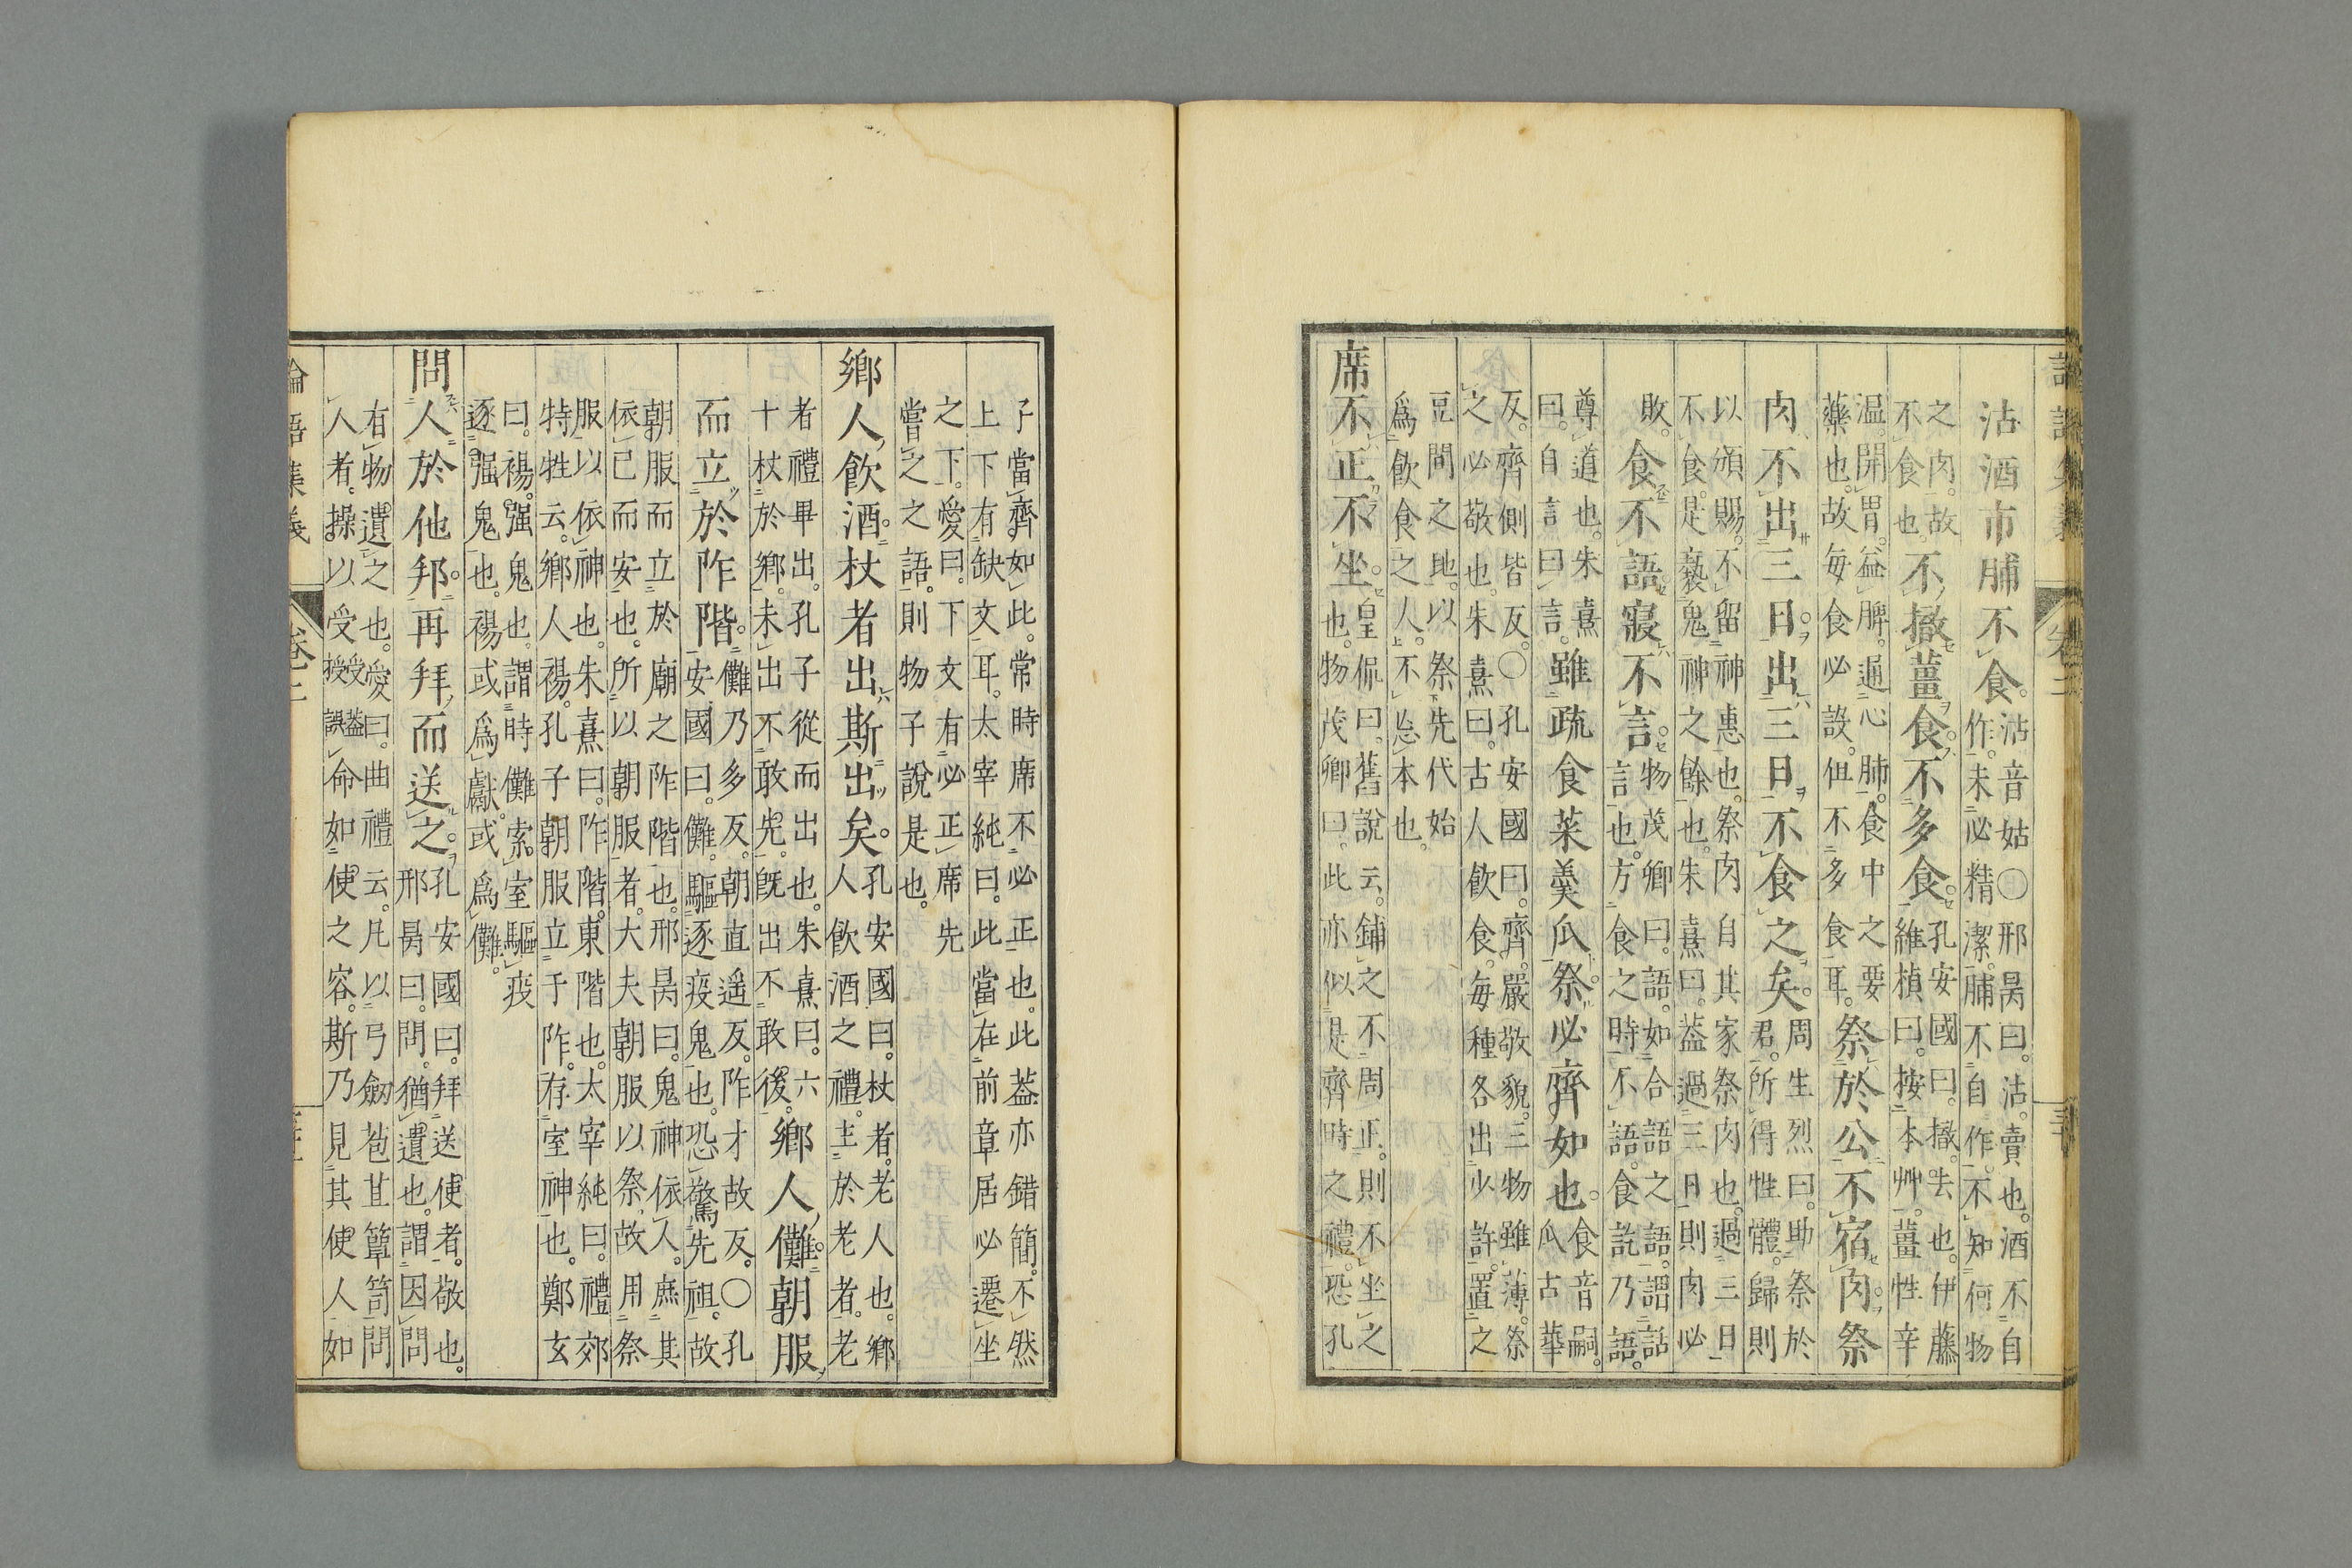 沽酒市脯不食。沽音姑○邢昺曰。沽。賣也。酒不自
作。未必精潔。脯不自作。不知何物
之肉。故
不食也。不撤薑食。不多食。孔安國曰。撤。去也。伊藤
維楨曰。按本艸。薑性辛
温。開胃。益脾。通心肺。食中之要
藥也。故毎食必設。但不多食耳。祭於公。不宿肉。祭
肉不出三日。出三日。不食之矣。周生烈曰。助祭於
君。所得牲體。歸則
以頒賜。不留神惠也。祭肉自其家祭肉也。過三日
不食。是褻鬼神之餘也。朱熹曰。葢過三日則肉必
敗。食不語。寢不言。物茂卿曰。語。如合語之語。謂話
言也。方食之時不語。食訖乃語。
尊道也。朱熹
曰。自言曰言。雖疏食菜羹瓜祭。必齊如也。食音嗣。
瓜古華
反。齊側皆反。○孔安國曰。齊。嚴敬貌。三物雖薄。祭
之必敬也。朱熹曰。古人飮食。毎種各出少許。置之
豆間之地。以祭先代始
爲飮食之人。不忘本也。
席不正不坐。皇侃曰。舊說云。鋪之不周正。則不坐之
也。物茂卿曰。此亦似是齊時之禮。恐孔
子當齊。如此。常時席不必正也。此葢亦錯簡。不然
上下有缺文耳。太宰純曰。此當在前章居必遷坐
之下。愛曰。下文有必正席先
嘗之之語。則物子說是也。
鄉人飮酒。杖者出。斯出矣。孔安國曰。杖者。老人也。鄉
人飮酒之禮。主於老者。老
者禮畢出。孔子從而出也。朱熹曰。六
十杖於鄉。未出不敢先。旣出不敢後。鄉人儺。朝服
而立於阼階。儺乃多反。朝直遥反。阼才故反。○孔
安國曰。儺。驅逐疫鬼也。恐驚先祖。故
朝服而立於廟之阼階也。邢昺曰。鬼神依人。庶其
依己而安也。所以朝服者。大夫朝服以祭。故用祭
服以依神也。朱熹曰。阼階。東階也。太宰純曰。禮郊
特牲云。鄉人禓。孔子朝服立于阼。存室神也。鄭玄
曰。禓。强鬼也。謂時儺索室驅疫
逐强鬼也。禓或爲獻。或爲儺。
問人於他邦。再拜而送之。孔安國曰。拜送使者。敬也。
邢昺曰。問。猶遺也。謂因問
有物遺之也。愛曰。曲禮云。凡以弓劒苞苴簞笥問
人者。操以受受葢授誤命如使之容。斯乃見其使人如